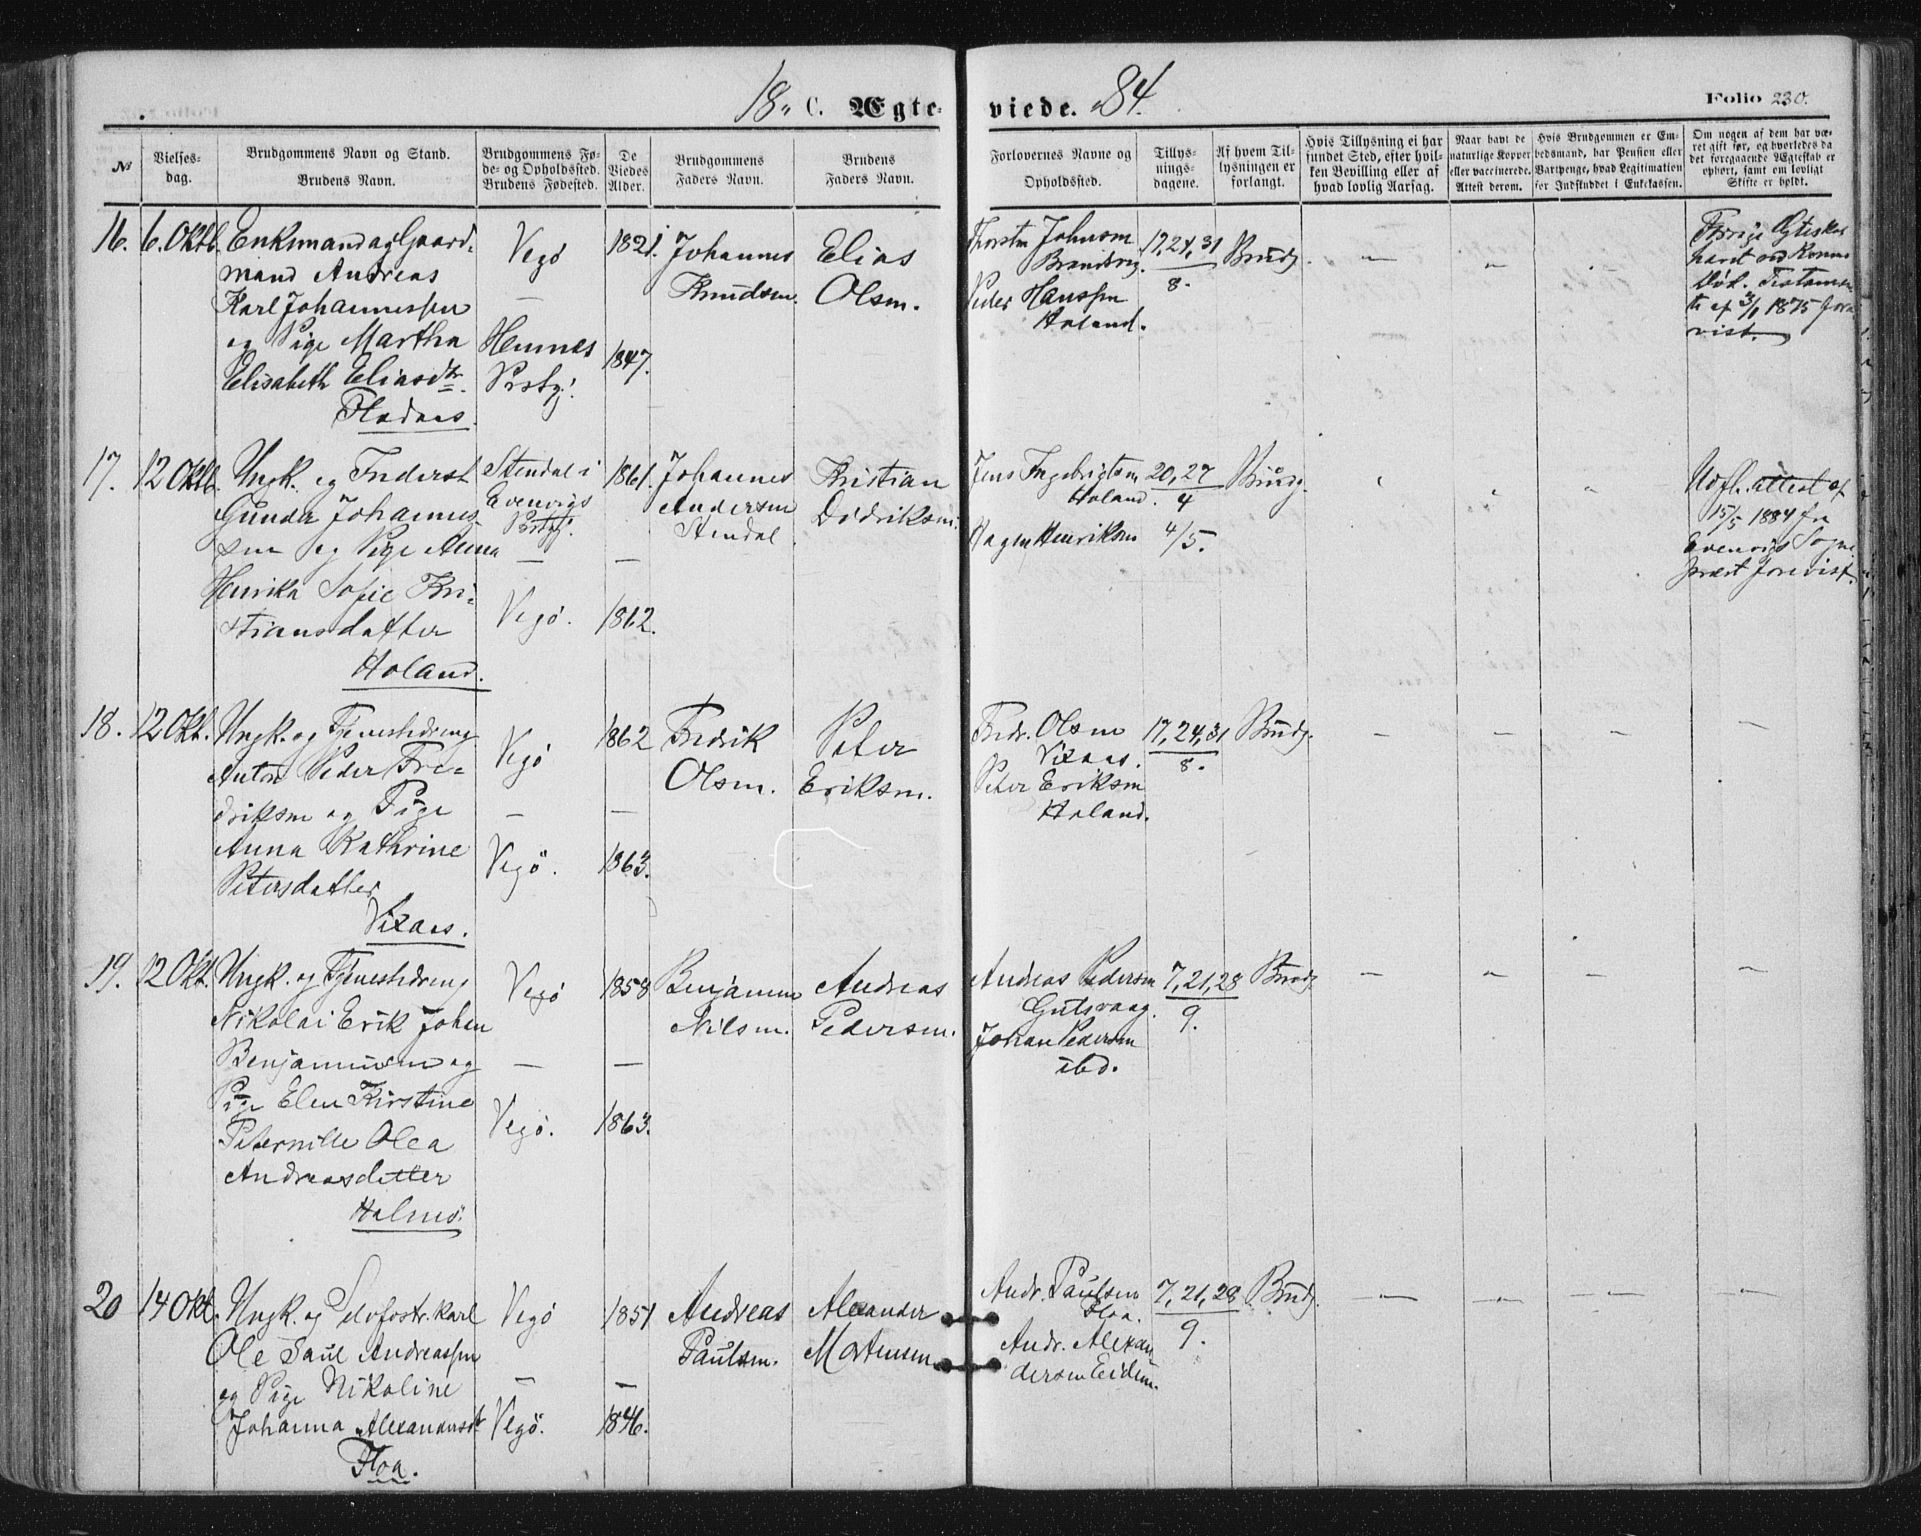 18" C. Ægte-viede. 84.
Folio 230.
№
Vielses-
dag.
Brudgommens Navn og Stand.
Brudens Navn.
Brudgommens Fø-
de- og Opholdssted.
Brudens Fødested.
De
Viedes
Alder.
Brudgommens
Faders Navn.
Brudens
Faders Navn.
Forlovernes Navne og
Opholdssted.
Tillys-
nings-
dagene.
Af hvem Til-
lysningen er
forlangt.
Hvis Tillysning ei har
fundet Sted, efter hvil-
ken Bevilling eller af
hvad lovlig Aarsag.
Naar havt de
naturlige Kopper
eller vaccinerede.
Attest derom.
Hvis Brudgommen er Em-
bedsmand, har Pension eller
Vartpenge, hvad Legitimation
for Indskuddet i Enkekassen.
Om nogen af dem har væ-
ret gift før, og hvorledes da
det foregaaende Ægteskab er
ophørt, samt om lovligt
Skifte er holdt.
16. 6. Oktb.
Enkemand og Gaard-
mand Andreas
Karl Johannessen
og Pige Martha
Elisabeth Eliasdtr.
Fladaas.
Vegø
—
Hemnes
Prstgj.
1821.
1847.
Johannes
Knudsen.
Elias
Olsen.
Thorsten Johnsen
Peder Hanssen
Holand.
17,24,31
8.
Brudg.
— — —
Døk. Testamen-
te af 3/1 1875 fore
vist.
17. 12 Oktb.
Ungk. og Inderst
Gunda Johannes-
sen og Pige Anna
Henrika Sofie Kri-
stiansdatter
Holand.
Stendal i
Evenvigs
Prstgj.
—
Vegø.
1861.
—
1862.
Johannes
Andersen
Stendal.
Kristian
Didriksen.
Jens Ingebrigtsen
Holand.
Hagen Henriksen
20,27
4
4/5.
Brudg.
" " "
Udfl. attest af
15/5 1884 fra
Evenvigs Sogne
præst forevist.
18. 12 Okt.
Ungk. og Tjenestedreng
Anton Peder Fre-
driksen og Pige
Anna Kathrine
Petersdatter
Vixaas.
Vegø
—
Vegö.
1862
—
1863.
Fredrik
Olsen.
Peter
Eriksen.
Fredr. Olsen
Vixaas.
Peter Eriksen
Holand.
17,24,31
8.
Brudg.
— — — —
19. 12 Okt.
Ungk. og Tjenestedreng
Nikolai Erik Johan
Benjaminsen og
Pige Elen Kirstine
Peternille Olea
Andreasdatter
Holmø.
Vegø
—
Vegø.
1858
—
1863.
Benjamin
Nilsen.
Andreas
Pedersen.
Andreas Pedersen
Gutsvaag.
Johan Pedersen
ibd.
7,21,28
9.
Brudg
— — — —
20 14 Okt.
Ungk. og Selvfostr. karl
Ole Paul Andreassen
og Pige Nikoline
Johanna Alexandersdtr
Floa.
Vegø
—
Vegö.
1851
—
1846.
Andreas
Paulsen.
Alexander
Mortensen
Andr. Paulsen
Floa.
Andr. Alexan-
dersen Eidem.
7,21,28
9.
Brudg.
— — — —